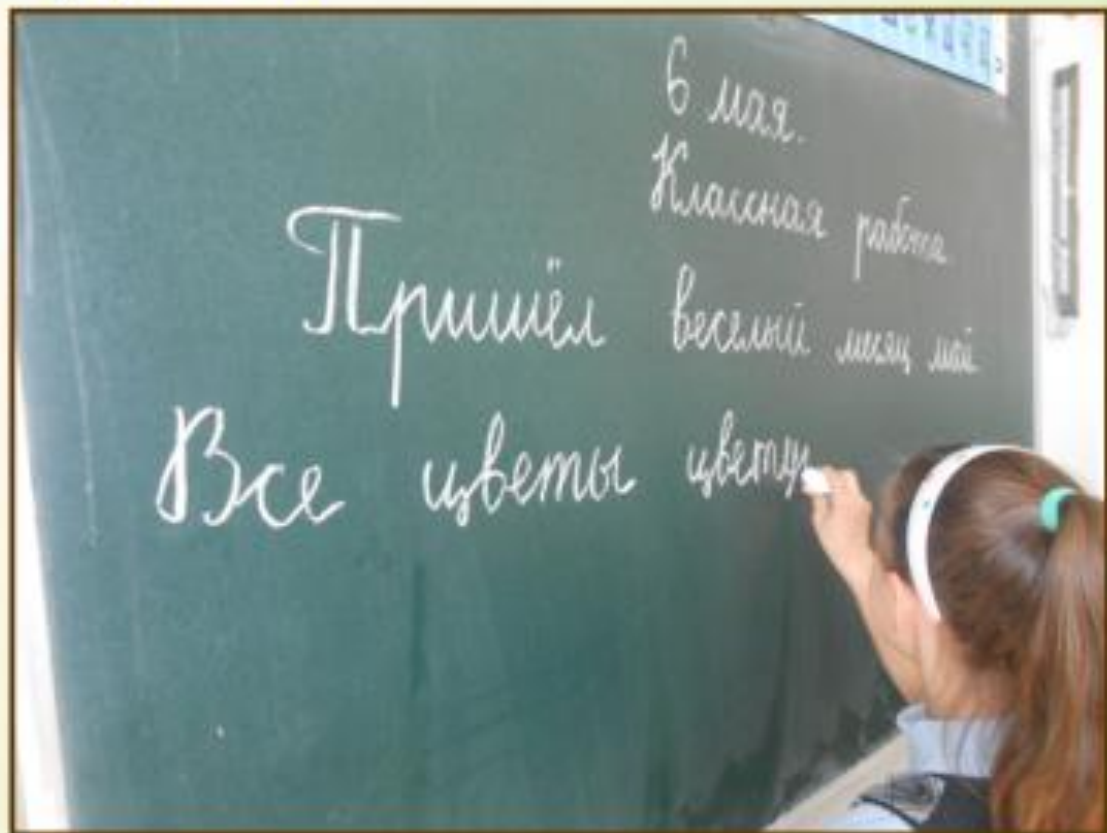 6 мая.
Классная работа
Пришёл веселый месяц май
Все цветы цвету